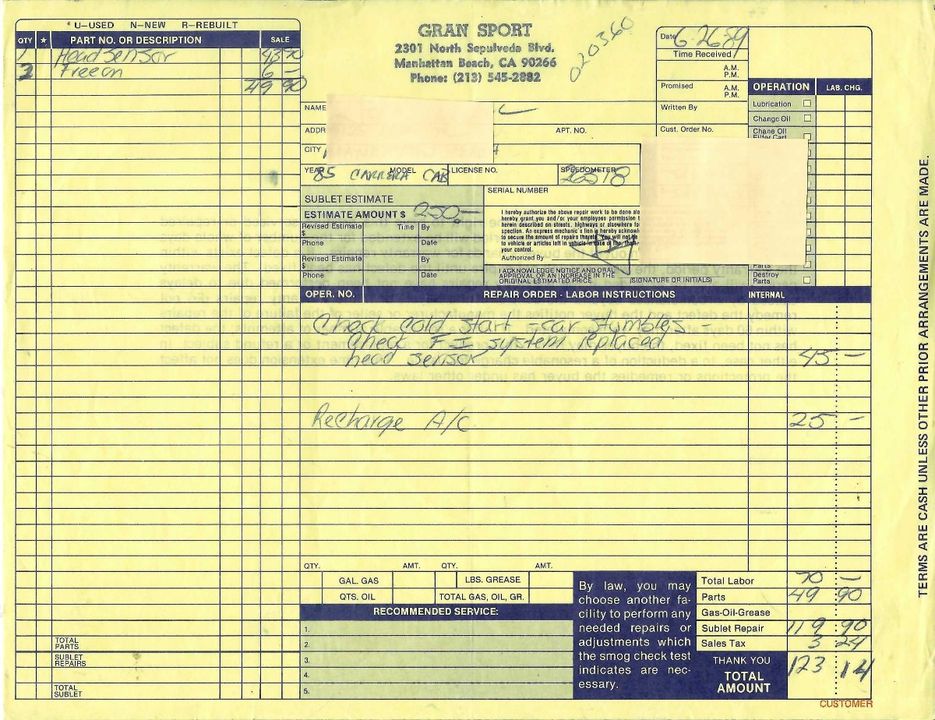 * U—USED N—NEW R—REBUILT
QTY ★ PART NO. OR DESCRIPTION SALE
1 Head sensor 43 90
2 Freon 6 —
49 90
GRAN SPORT
2301 North Sepulveda Blvd.
Manhattan Beach, CA 90266
Phone: (213) 545-2882
020360
Date 6-26-89
Time Received
A.M.
P.M.
Promised A.M.
P.M.
Written By
Cust. Order No.
OPERATION LAB. CHG.
Lubrication
Change Oil
Change Oil
Filter Cart
NAME
ADDR
APT. NO.
CITY
YEAR MODEL LICENSE NO. SPEEDOMETER
85 CARRERA CAB 26518
SERIAL NUMBER
SUBLET ESTIMATE
ESTIMATE AMOUNT $ 250.—
Revised Estimate Time By
$
Phone Date
Revised Estimate By
$
Phone Date
I hereby authorize the above repair work to be done
hereby grant you and/or your employees permission
herein described on streets, highways or elsewhere
spection. An express mechanic's lien is hereby
to secure the amount of repairs thereto. You will not
to vehicle or articles left in vehicle in case of
your control.
Authorized By
I ACKNOWLEDGE NOTICE AND ORAL
APPROVAL OF AN INCREASE IN THE
ORIGINAL ESTIMATED PRICE.
(SIGNATURE OR INITIALS)
Parts
Destroy
Parts
OPER. NO. REPAIR ORDER - LABOR INSTRUCTIONS INTERNAL
Check cold start - car stumbles -
Check F I system replaced
head sensor 45 —
Recharge A/C 25 —
QTY. AMT. QTY. AMT.
GAL. GAS LBS. GREASE
QTS. OIL TOTAL GAS, OIL, GR.
RECOMMENDED SERVICE:
1.
2.
3.
4.
5.
By law, you may
choose another fa-
cility to perform any
needed repairs or
adjustments which
the smog check test
indicates are nec-
essary.
Total Labor 70 —
Parts 49 90
Gas-Oil-Grease
Sublet Repair 119 90
Sales Tax 3 24
THANK YOU
TOTAL
AMOUNT
123 14
TOTAL
PARTS
SUBLET
REPAIRS
TOTAL
SUBLET
CUSTOMER
TERMS ARE CASH UNLESS OTHER PRIOR ARRANGEMENTS ARE MADE.